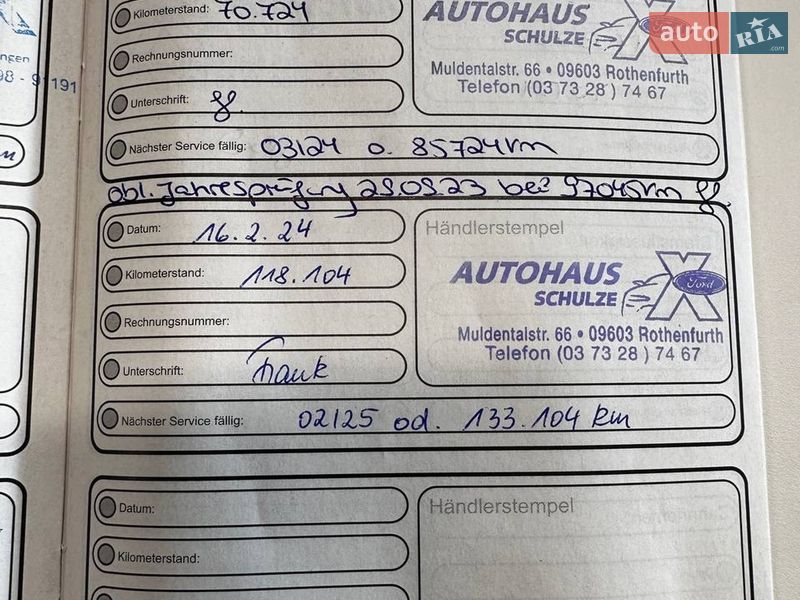 Kilometerstand: 70.724
AUTOHAUS
SCHULZE
auto RIA .com
Rechnungsnummer:
Muldentalstr. 66 • 09603 Rothenfurth
Telefon (03 73 28) 74 67
Unterschrift:
191
Nächster Service fällig: 03/24 o. 85724km
Jahresprüfung 29.09.23 bei 97045km
Datum: 16.2.24
Händlerstempel
Kilometerstand: 118.104
AUTOHAUS
SCHULZE
Ford
Rechnungsnummer:
Muldentalstr. 66 • 09603 Rothenfurth
Telefon (03 73 28) 74 67
Unterschrift: Frank
Nächster Service fällig: 02/25 od. 133.104 km
Datum:
Händlerstempel
Kilometerstand: